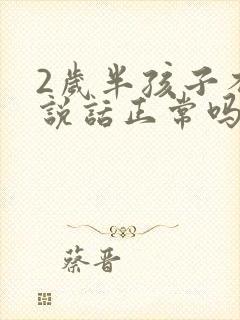 2歲半孩子
說話正常吗
蔡晋